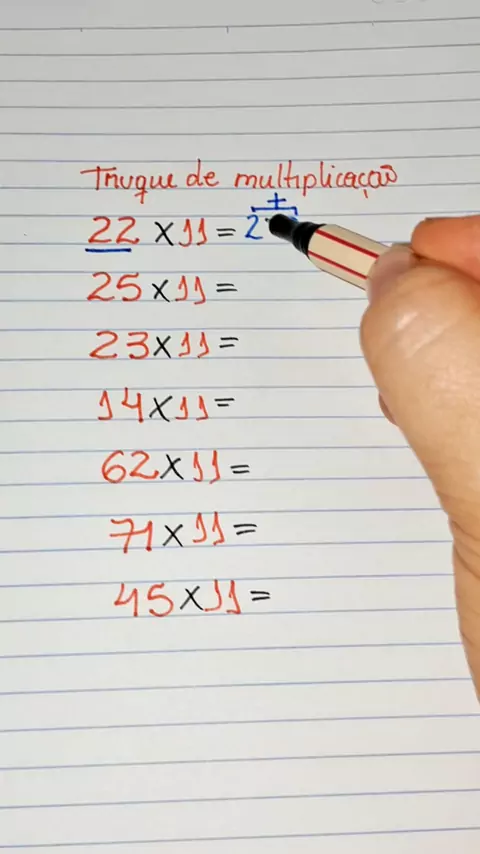 Truque de multiplicação
+
22 x 11 = 2
25 x 11 =
23 x 11 =
14 x 11 =
62 x 11 =
71 x 11 =
45 x 11 =